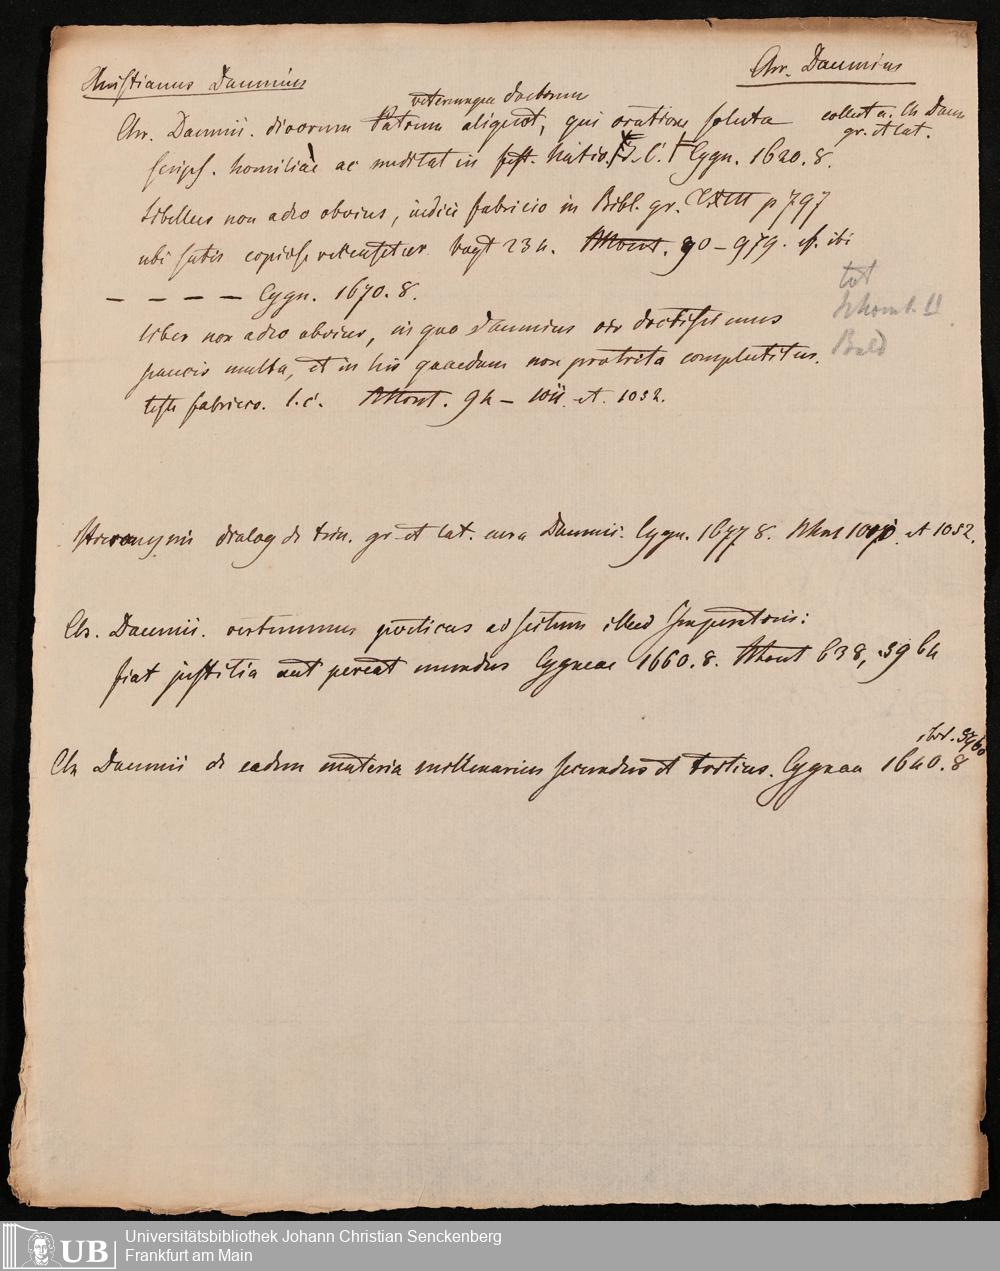 Christianus Daumius
Chr. Daumius
veterumque doctorum
Chr. Daumii. divorum Patrum aliquot, qui oratione soluta
collecta a. Ch Daum
gr. et lat.
scrips. homiliae ac meditat in fest. Natio. J. C. Cygn. 1620. 8.
libellus non adeo obvius, indice fabricio in Bibl. gr. TXIII p 797
ubi satis copiose recensetur Vogt 234. 90 – 979. cf. ibi
– – – – Cygn. 1670. 8.
tot
II
liber non adeo obvius, in quo Daumius vir doctissimus
paucis multa, et in his quaedam non protrita complectitur.
teste fabricio. l. c. 94 – et 1032.
Hieronymi dialog de trin. gr. et lat. cura Daumii. Cygn. 1677 8. et 1052.
Ch. Daumii. vertumnus poeticus ad scitum illud Imperatoris:
fiat justitia aut pereat mundus Cygneae 1660. 8. 638,
Ch Daumii de eadem materia millenarius secundus et tertius. Cygneae 1640. 8
Universitätsbibliothek Johann Christian Senckenberg
Frankfurt am Main
UB